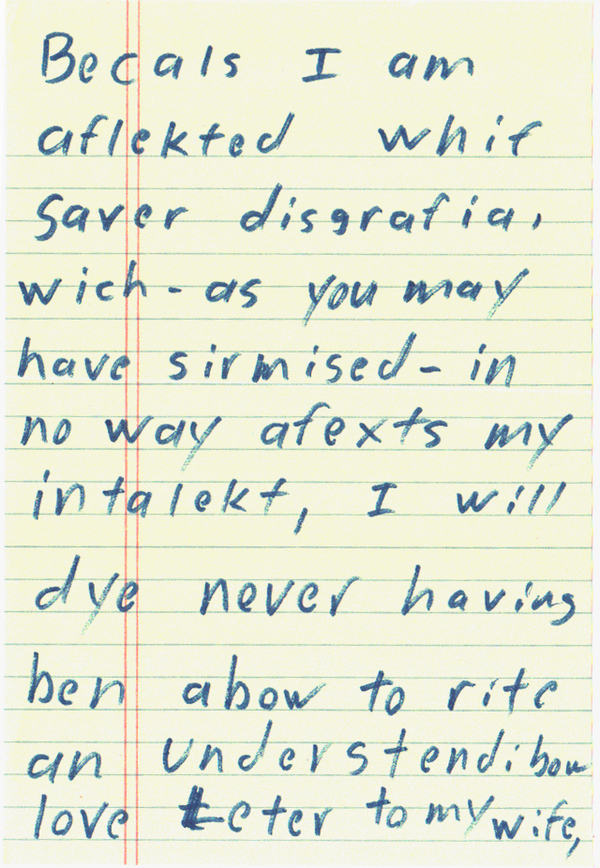 Becals I am
aflekted whif
saver disgrafia,
wich - as you may
have sirmised - in
no way afexts my
intalekt, I will
dye never having
ben abow to rite
an understendibow
love Leter to my wife,